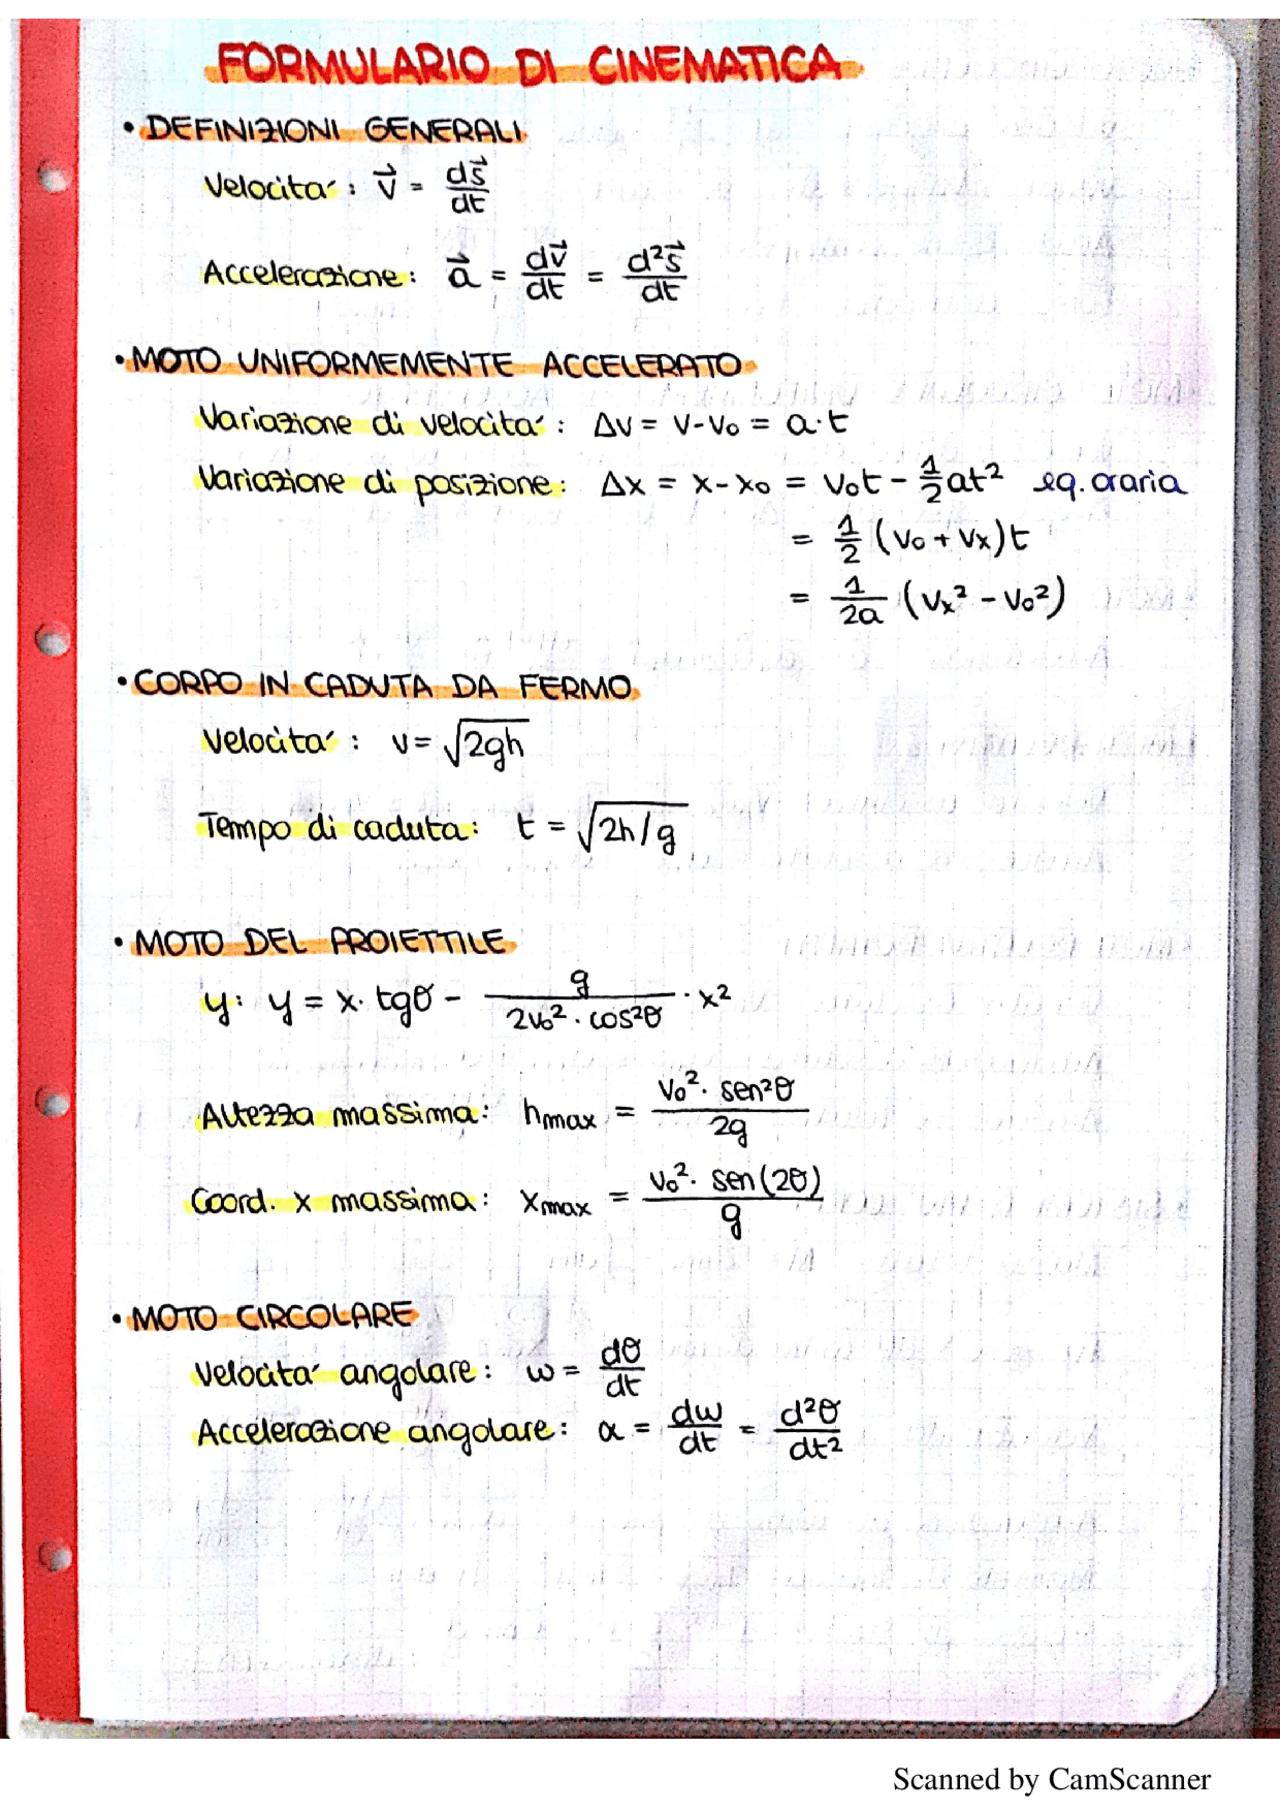 FORMULARIO DI CINEMATICA
• DEFINIZIONI GENERALI
Velocita': v⃗ = ds⃗/dt
Accelerazione: a⃗ = dv⃗/dt = d²s⃗/dt
• MOTO UNIFORMEMENTE ACCELERATO
Variazione di velocita': Δv = v-v₀ = a·t
Variazione di posizione: Δx = x-x₀ = v₀t - ½at² eq. oraria
= ½ (v₀ + vₓ)t
= 1/2a (vₓ² - v₀²)
• CORPO IN CADUTA DA FERMO
Velocita': v = √2gh
Tempo di caduta: t = √2h/g
• MOTO DEL PROIETTILE
y: y = x· tgθ - g/2v₀²·cos²θ · x²
Altezza massima: hmax = v₀²· sen²θ/2g
Coord. x massima: xmax = v₀²· sen(2θ)/g
• MOTO CIRCOLARE
Velocita' angolare: ω = dθ/dt
Accelerazione angolare: α = dω/dt = d²θ/dt²
Scanned by CamScanner